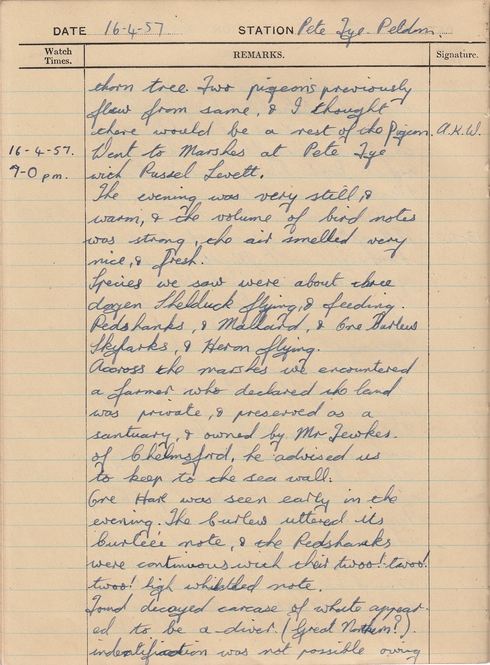 DATE 16-4-57. STATION Pete Tye. Peldon.
Watch Times. REMARKS. Signature.
thorn tree. Two pigeons previously
flew from same, & I thought
there would be a nest of the Pigeon. A.K.W.
16-4-57. Went to Marshes at Pete Tye
9-0 pm. with Russel Levett.
The evening was very still, &
warm, & the volume of bird notes
was strong, the air smelled very
nice, & fresh.
Species we saw were about three
dozen Shelduck flying, & feeding.
Redshanks, & Mallard, & One Curlew
Skylarks, & Heron flying.
Accross the marshes we encountered
a farmer who declared the land
was private, & preserved as a
santuary, & owned by Mr Tewkes.
of Chelmsford, he advised us
to keep to the sea wall.
One Hare was seen early in the
evening. The Curlew uttered its
Curleei note, & the Redshanks
were continuous with their twoo! twoo!
twoo! high whistled note.
Found decayed carcase of what appear-
ed to be a diver. (Great Northern?).
indentification was not possible owing